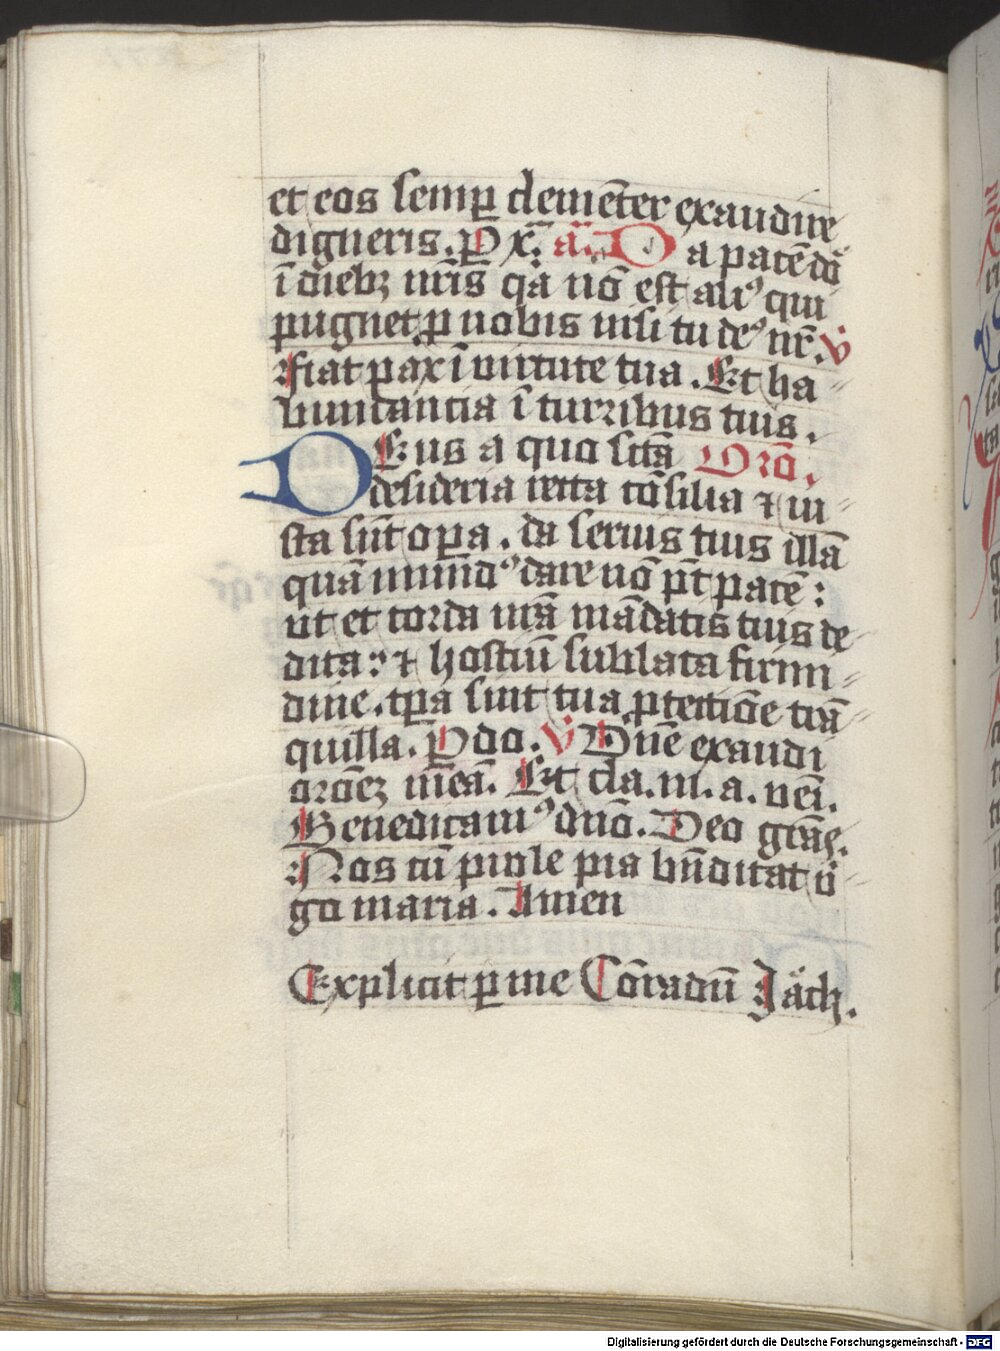 et eos semꝑ clemēter exaudire
digneris. P xͫ. aͣ. Da pacē dn̄e
ī dieb⁊ nr̄is qͣ nō est aliꝰ qui
pugnet ꝓ nobis nisi tu deꝰ nr̄. V
Fiat pax ī virtute tua. Et ha⸗
bundancia ī turribus tuis.
DEus a quo sct̄a Orō.
desideria recta cōsilia ⁊ iu⸗
sta sūt oꝑa. da seruis tuis illā
quā mundꝰ dare nō pt̄ pacē:
ut et corda nr̄a mādatis tuis de⸗
dita: ⁊ hostiū sublata formi⸗
dine. tꝑa sint tua ꝓtectiōe trā⸗
quilla. P do. V Dn̄e exaudi
orōeꝫ meā. Et cla. m. a. v̄ei.
Benedicamꝰ dn̄o. Deo grāꝫ.
Nos cū prole pia bn̄dicat v̄
go maria. Amen
Explicit ꝑ me Cōradū Jäck.
Digitalisierung gefördert durch die Deutsche Forschungsgemeinschaft - DFG